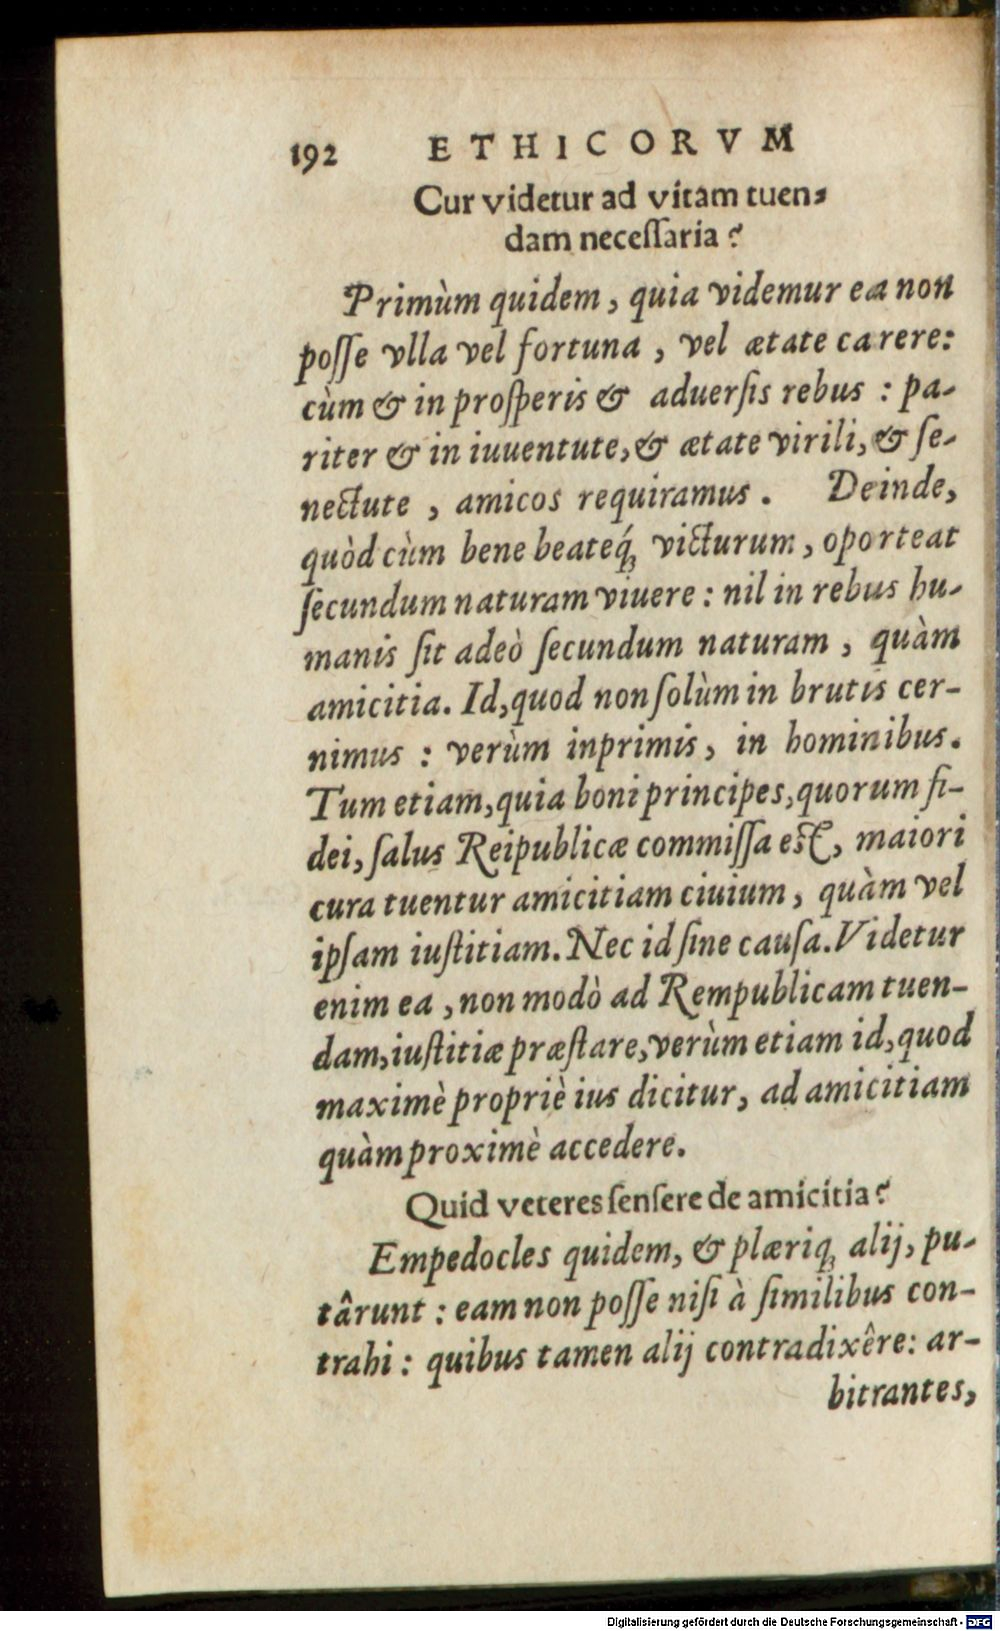 192 ETHICORVM
Cur videtur ad vitam tuen-
dam neceſſaria?
Primùm quidem, quia videmur ea non
poſſe vlla vel fortuna, vel ætate carere:
cùm & in proſperis & aduerſis rebus : pa-
riter & in iuuentute, & ætate virili, & ſe-
nectute, amicos requiramus. Deinde,
quòd cùm bene beateq́; victurum, oporteat
ſecundum naturam viuere : nil in rebus hu-
manis ſit adeò ſecundum naturam, quàm
amicitia. Id, quod non ſolùm in brutis cer-
nimus : verùm inprimis, in hominibus.
Tum etiam, quia boni principes, quorum fi-
dei, ſalus Reipublicæ commiſſa eſt, maiori
cura tuentur amicitiam ciuium, quàm vel
ipſam iuſtitiam. Nec id ſine cauſa. Videtur
enim ea, non modò ad Rempublicam tuen-
dam, iuſtitiæ præſtare, verùm etiam id, quod
maximè propriè ius dicitur, ad amicitiam
quàm proximè accedere.
Quid veteres ſenſere de amicitia?
Empedocles quidem, & plæriq; alij, pu-
târunt : eam non poſſe niſi à ſimilibus con-
trahi : quibus tamen alij contradixêre: ar-
bitrantes,
Digitalisierung gefördert durch die Deutsche Forschungsgemeinschaft - DFG